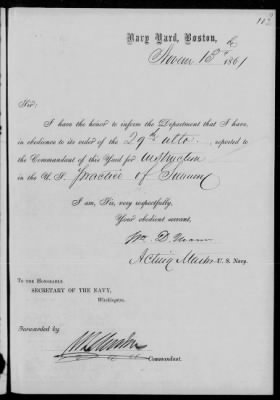 Navy Yard, Boston,
Novem 13th 1861
Sir:
I have the honor to inform the Department that I have,
in obedience to its order of the 29th ulto. reported to
the Commandant of this Yard for instruction
in the U. S. practice of Gunnery
I am, Sir, very respectfully,
Your obedient servant,
Wm. D.
Acting Master U. S. Navy.
To the Honorable
SECRETARY OF THE NAVY,
Washington.
Forwarded by
Commandant.